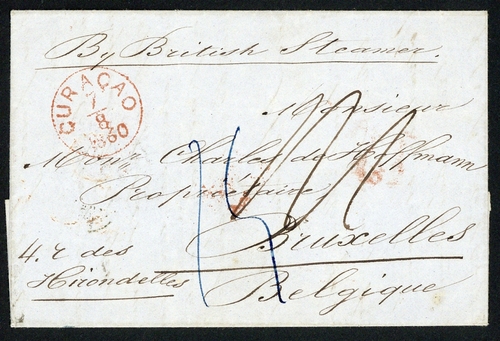 By British Steamer.
CURAÇAO
1860
Monsieur
Monsr Charles de Hoffmann
Propriétaire
Bruxelles
4. r des
Hirondelles
Belgique